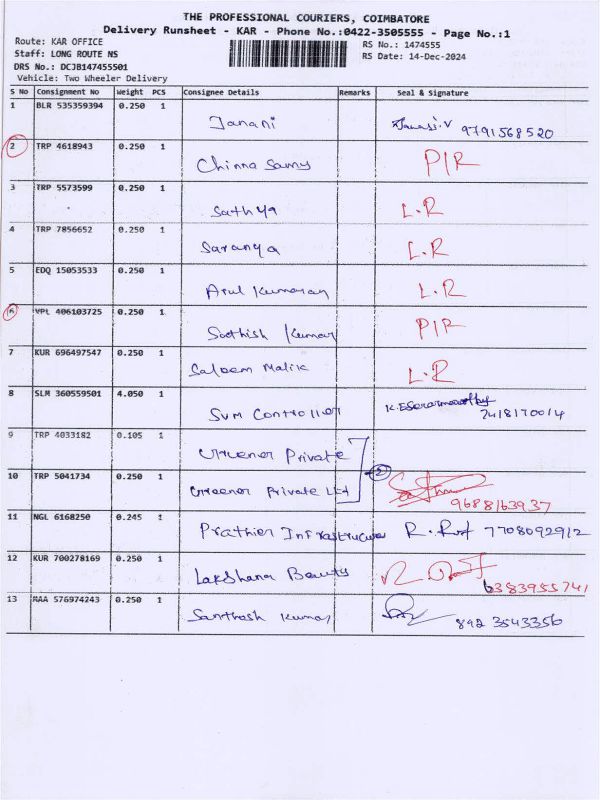 THE PROFESSIONAL COURIERS, COIMBATORE
Delivery Runsheet - KAR - Phone No.:0422-3505555 - Page No.:1
Route: KAR OFFICE
Staff: LONG ROUTE NS
DRS No.: DCJB147455501
Vehicle: Two Wheeler Delivery
RS No.: 1474555
RS Date: 14-Dec-2024
S No Consignment No Weight PCS Consignee Details Remarks Seal & Signature
1 BLR 535359394 0.250 1 Janani 9791568520
2 TRP 4618943 0.250 1 Chinna Samy P/R
3 TRP 5573599 0.250 1 Sathya L.R
4 TRP 7856652 0.250 1 Saranya L.R
5 EDQ 15053533 0.250 1 Arul Kumaran L.R
6 VPL 406103725 0.250 1 Sathish Kumar P/R
7 KUR 696497547 0.250 1 Saleem Malik L.R
8 SLM 360559501 4.050 1 SVM Controller
9 TRP 4033182 0.105 1 Greener Private
10 TRP 5041734 0.250 1 Greener Private Ltd 2 9688163937
11 NGL 6168250 0.245 1 Prathier Infrastructure 7708092912
12 KUR 700278169 0.250 1 Lakshana Beauty 6383955741
13 MAA 576974243 0.250 1 Santhosh Kumar 892 3543356